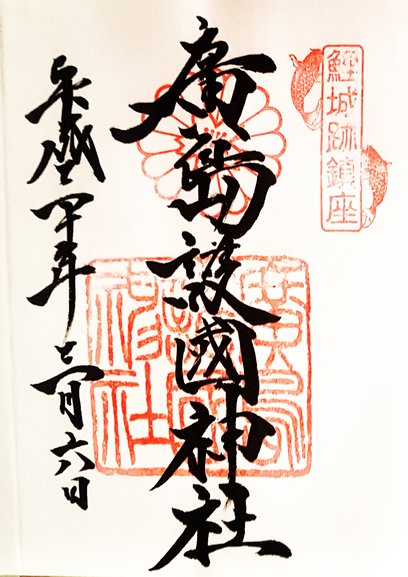 鯉城跡鎮座
廣島護國神社
平成卅年三月六日
廣島
護國
神社